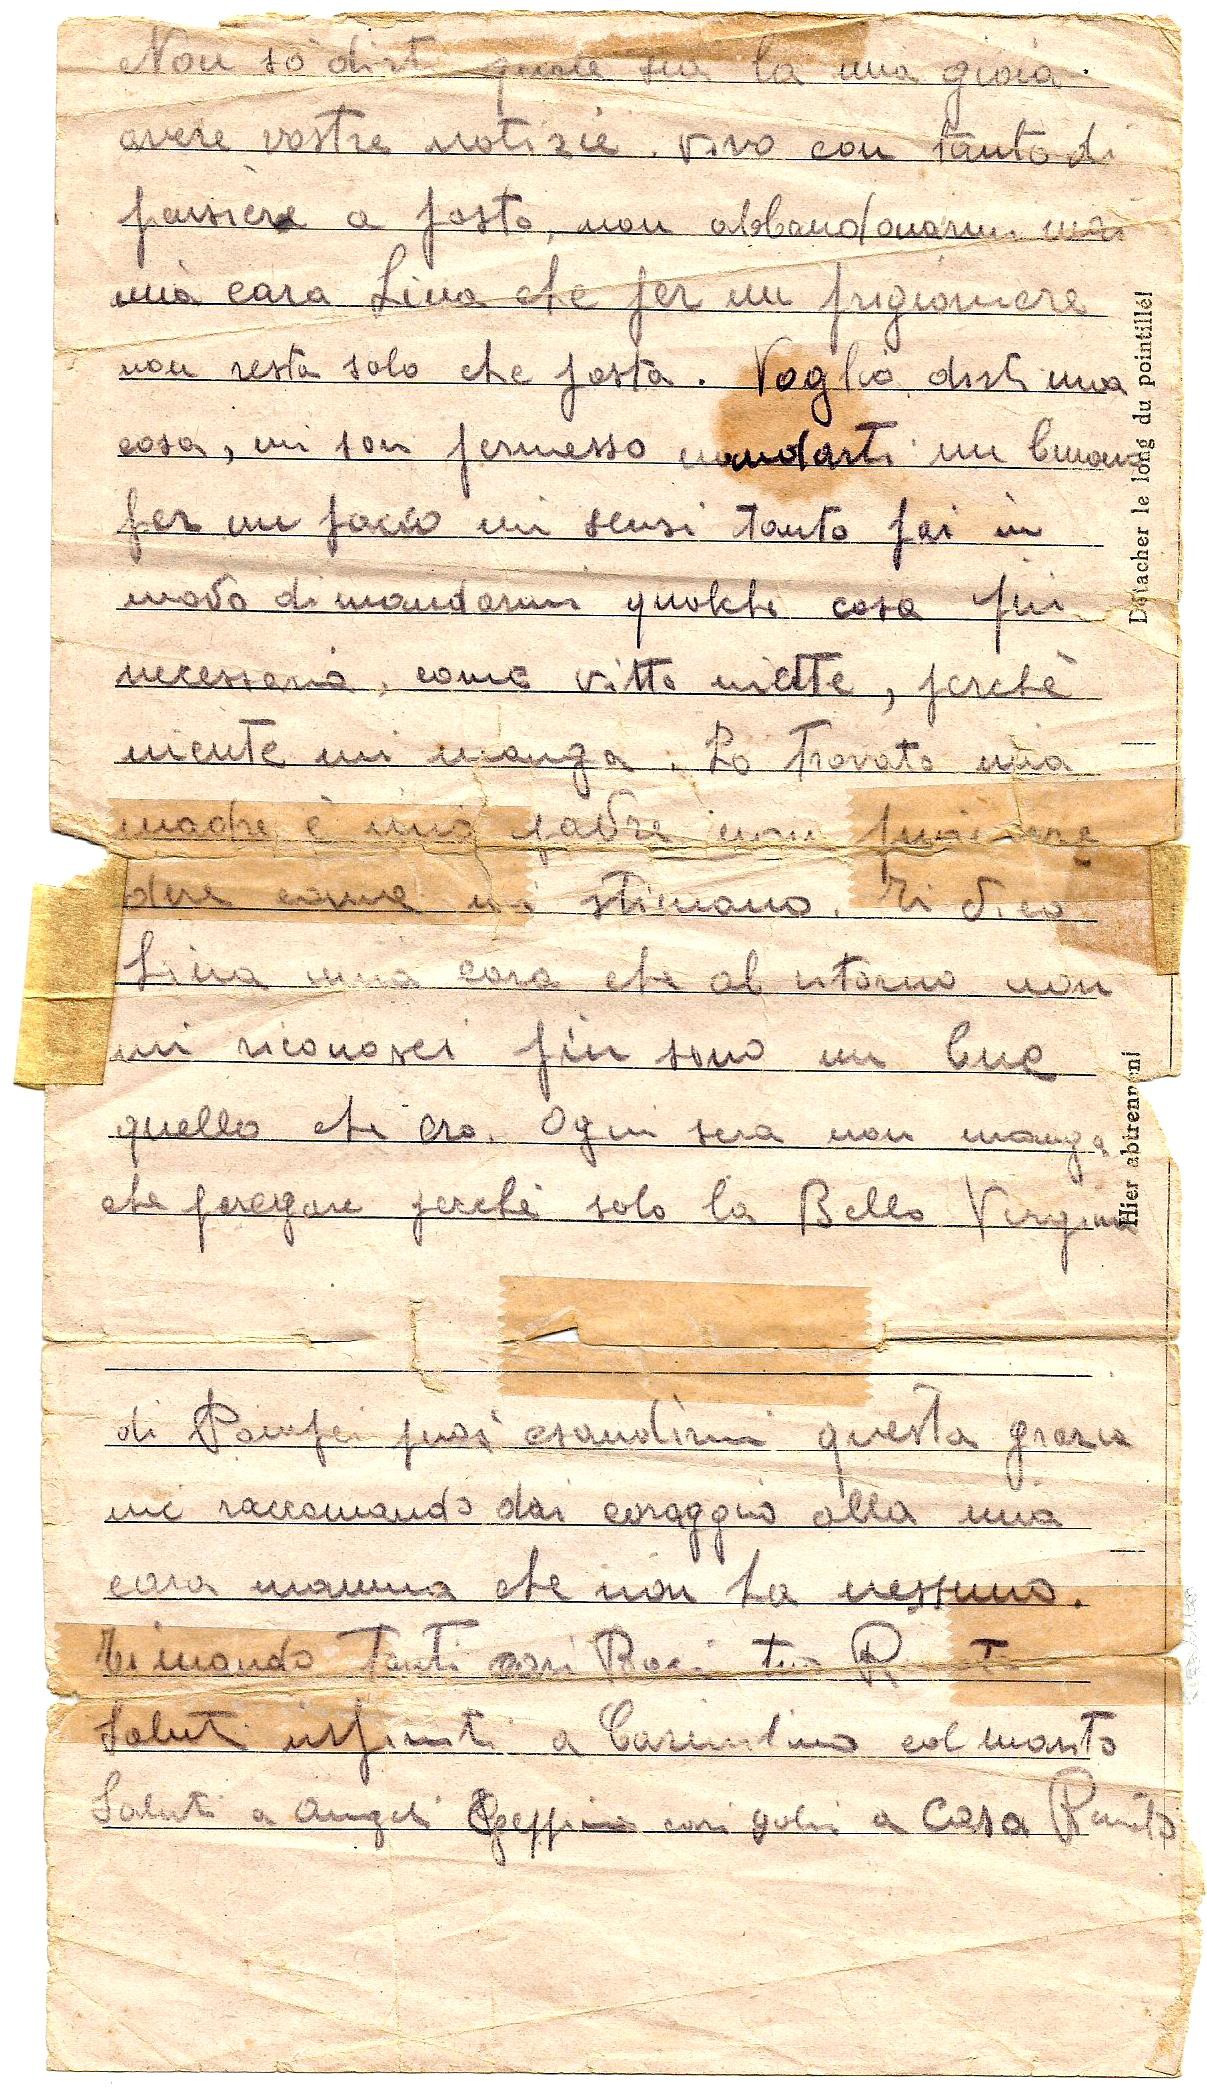 Non so dirti quale sia la mia gioia
avere vostre notizie. Vivo con tanto di
pensiere a posta, non abbandonarmi mai
mia cara Lina che per un prigioniere
non resta solo che posta. Voglio dirti una
cosa, mi son permesso mandarti un buono
per un pacco mi scusi tanto fai in
modo di mandarmi qualche cosa più
necessaria, come vitto niette, perchè
niente mi manga. Ho trovato mia
madre è mio padre non puoi cre
dere come mi stimano. Ti dico
Lina mia cara che al ritorno non
mi riconosci più sono un bue
quello che ero. Ogni sera non manga
che peregare perchè solo la Bella Vergine
di Pompei puoi esaudirmi questa grazia
mi raccomando dai coraggio alla mia
cara mamma che non ha nessuno.
Ti mando tanti cari Baci tuo
Saluti infiniti a col marito
Saluti a a casa
Détacher le long du pointillé!
Hier abtrennen!